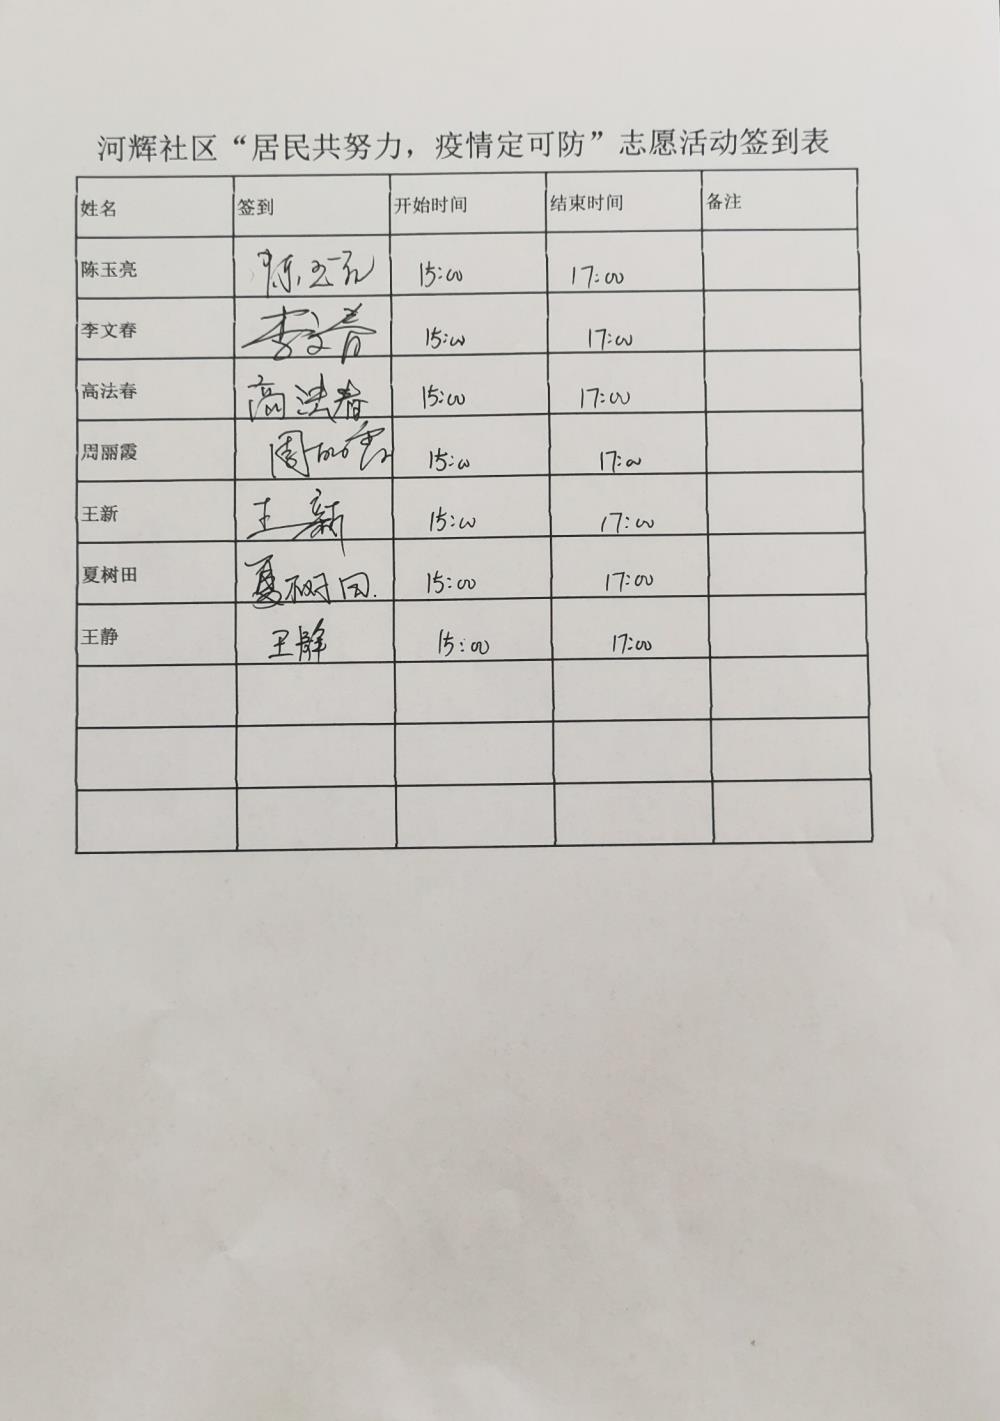 河辉社区“居民共努力，疫情定可防”志愿活动签到表
姓名 签到 开始时间 结束时间 备注
陈玉亮 陈玉亮 15:00 17:00
李文春 李文春 15:00 17:00
高法春 高法春 15:00 17:00
周丽霞 周丽霞 15:00 17:00
王新 王新 15:00 17:00
夏树田 夏树田. 15:00 17:00
王静 王静 15:00 17:00